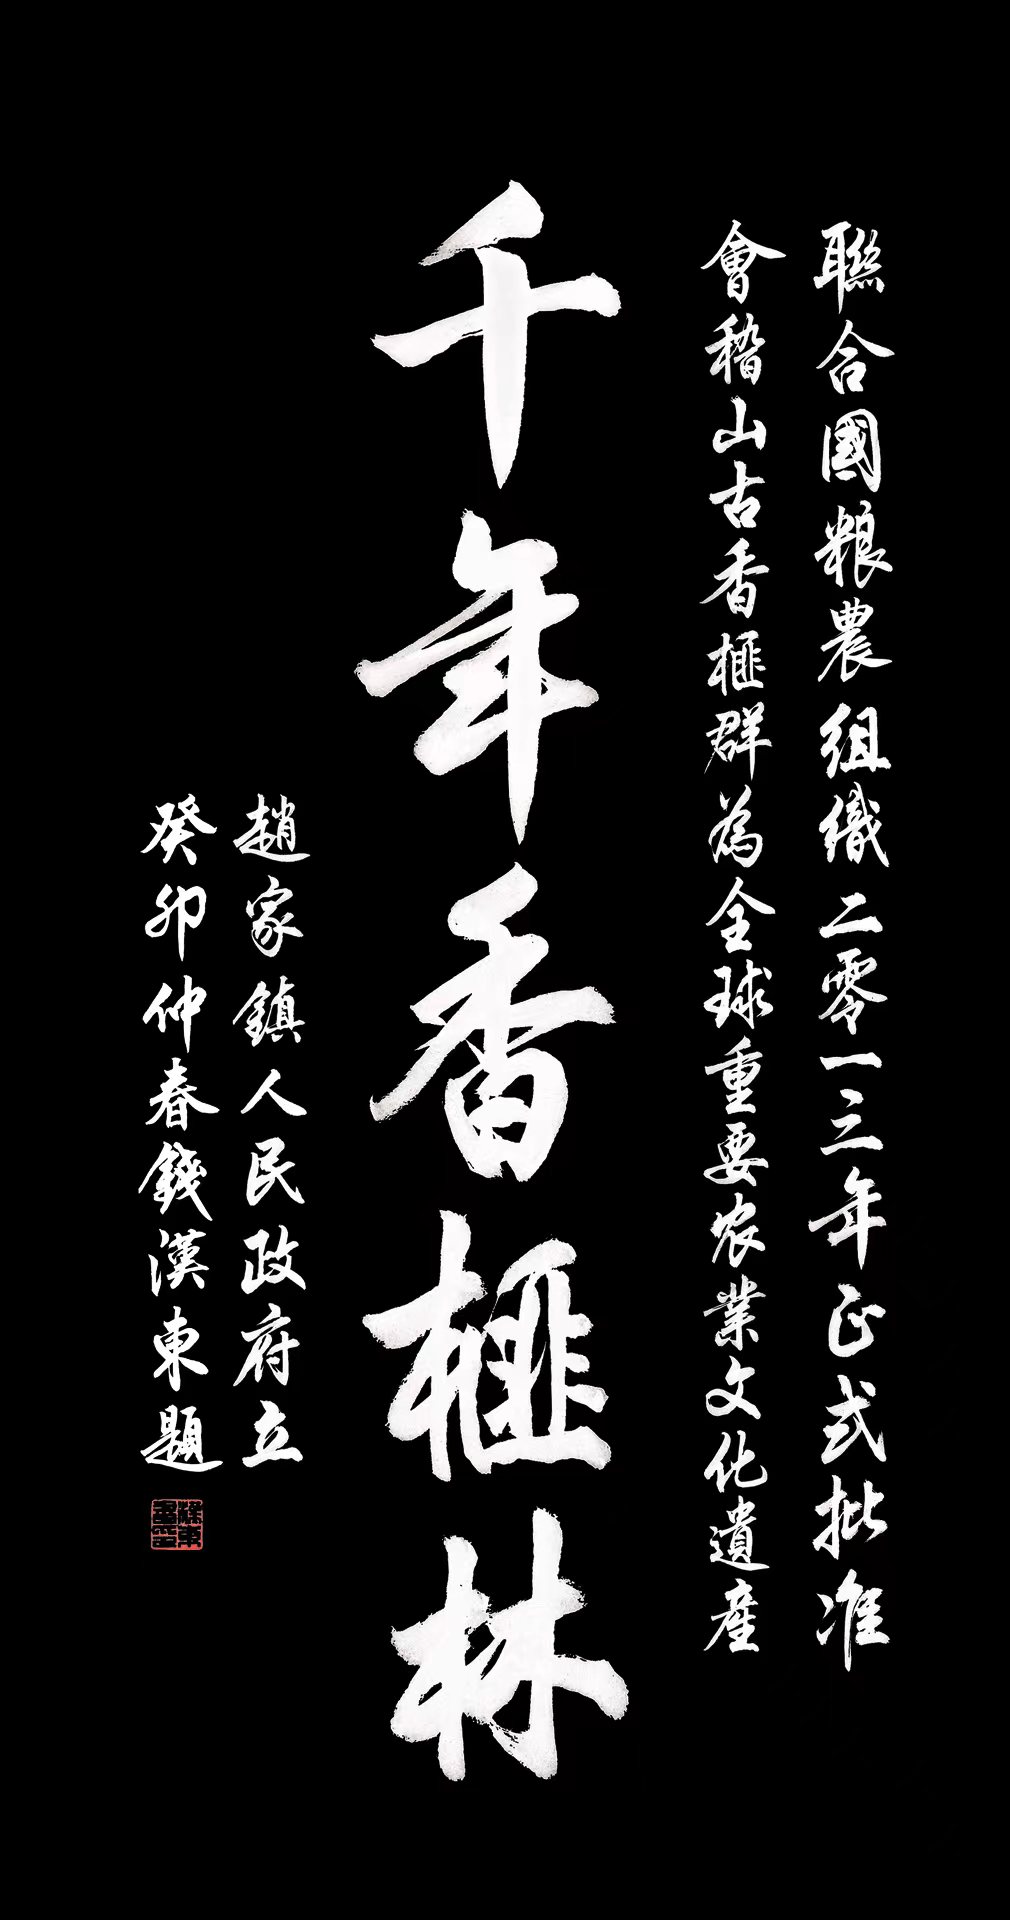 聯合國粮農組織二零一三年正式批准
會稽山古香榧群為全球重要农業文化遺產
千年香榧林
趙家鎮人民政府立
癸卯仲春錢漢東題